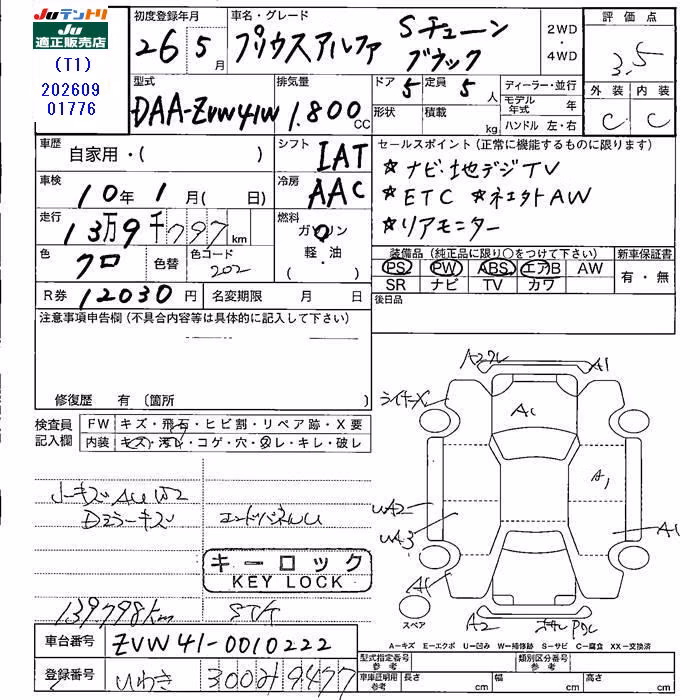 JUテントリ
JU適正販売店
(T1)
202609
01776
初度登録年月
26 5月
車名・グレード
プリウスアルファ Sチューン
ブラック
2WD・4WD
評価点
3.5
外装 内装
C C
型式
DAA-ZVW41W
排気量
1.800 CC
ドア 5
定員 5人
形状 積載 kg
ディーラー・並行
モデル年式 年
ハンドル 左・右
車歴
自家用・( )
シフト IAT
車検
10年 1月( 日)
冷房 AAC
走行
13万9千797km
燃料
ガソリン
軽・油
( ・ )
色
クロ 色替
色コード
202
R券 12030円
名変期限 月 日
セールスポイント(正常に機能するものに限ります)
☆ナビ・地デジTV
☆ETC
☆リアモニター
装備品(純正品に限り○をつけて下さい)
PS PW ABS エアB AW
SR ナビ TV カワ
新車保証書
有・無
後日品
注意事項申告欄(不具合内容等は具体的に記入して下さい)
修復歴 有 〔箇所
検査員記入欄
FW キズ・飛石・ヒビ割・リペア跡・X要
内装 キズ・汚れ・コゲ・穴・スレ・キレ・破レ
Dミラーキズ
エンドパネルU
キーロック
KEY LOCK
139798km
A1
A1
A1
UA2
UA3
A1
A1
A2
スペア
A=キズ E=エクボ U=凹み W=補修跡 S=サビ C=腐食 XX=交換済
車台番号 ZVW41-0010222
登録番号 いわき 300 み 9477
型式指定番号 参考
類別区分番号 参考
車庫証明用 参考 長さ cm 幅 cm 高さ cm